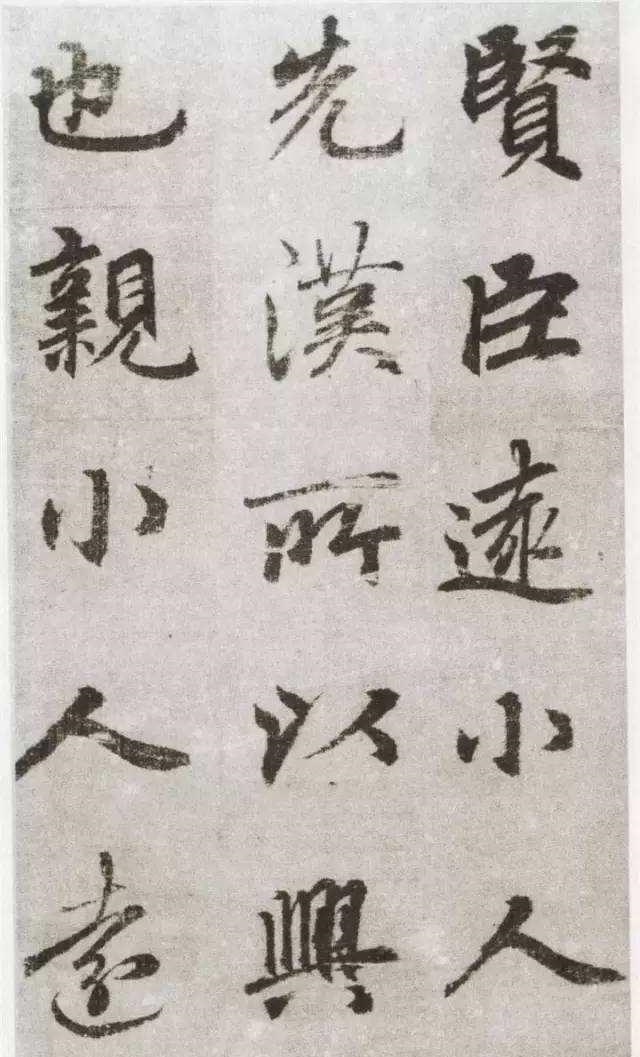 賢臣遠小人
先漢所以興
也親小人遠